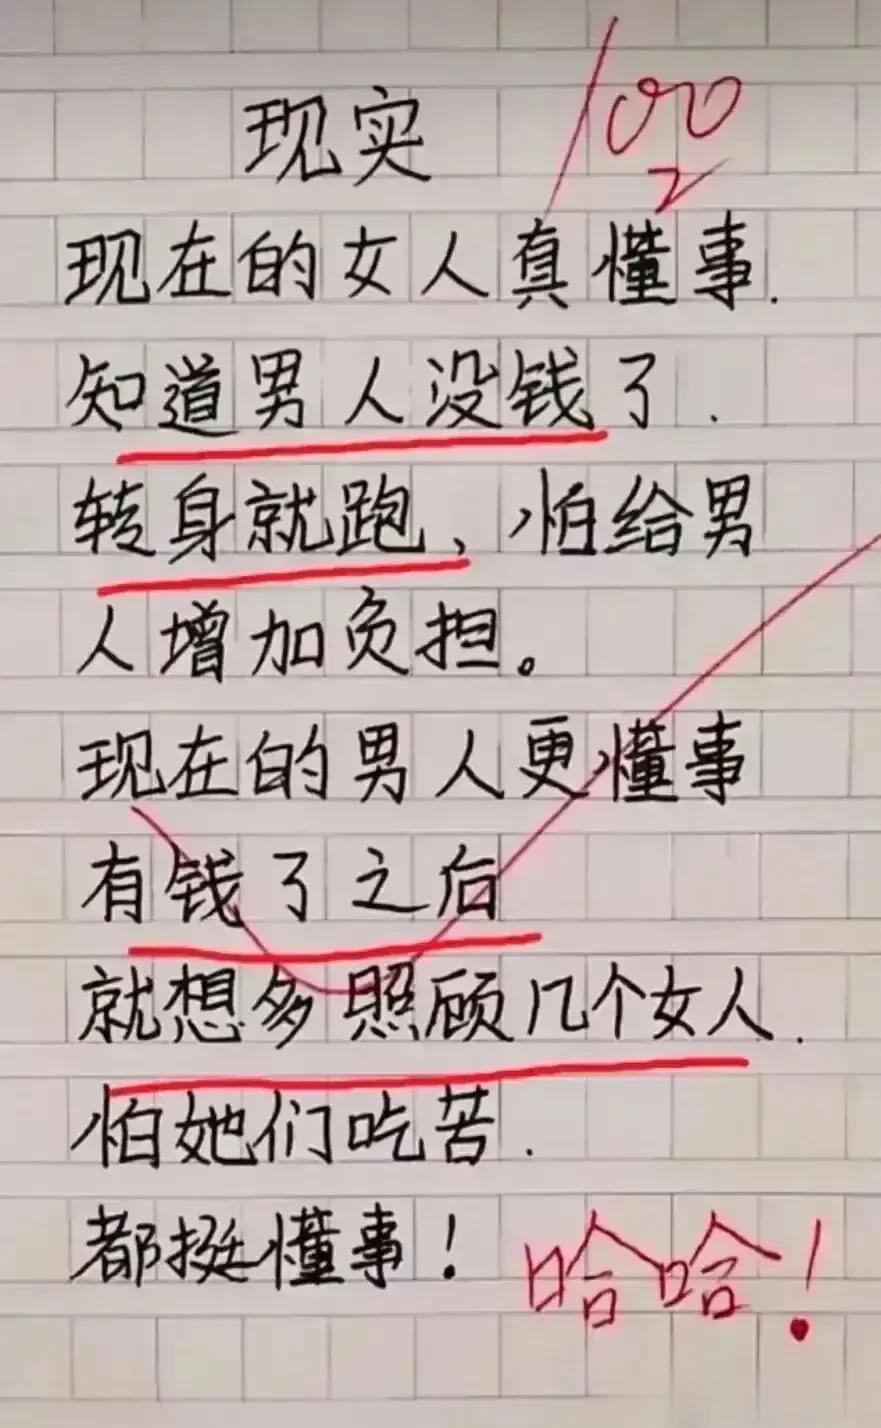 现实
100
现在的女人真懂事.
知道男人没钱了.
转身就跑、怕给男
人增加负担。
现在的男人更懂事
有钱了之后
就想多照顾几个女人.
怕她们吃苦.
都挺懂事!
哈哈!